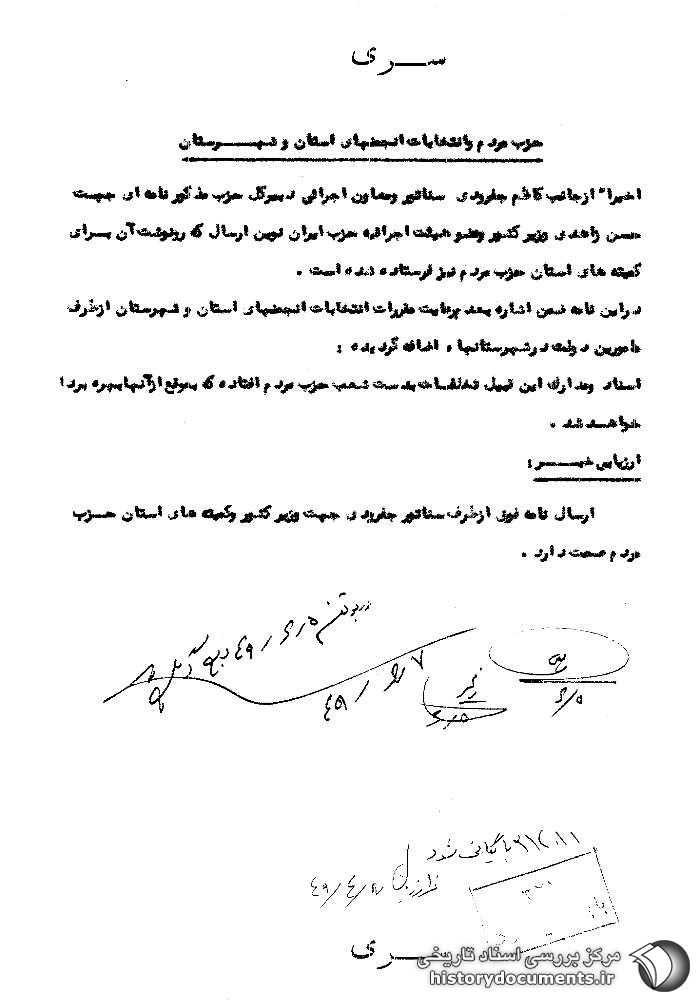 ســـری
حزب مردم وانتخابات انجمنهای استان و شهـــرستان
اخیرا" ازجانب کاظم جفرودی سناتور ومعاون اجرائی دبیرکل حزب مذکور نامه ای جهت
حسن زاهدی وزیر کشور وعضو هیئت اجرائیه حزب ایران نوین ارسال که رونوشت آن بـرای
کمیته های استان حزب مردم نیز فرستاده شده است .
دراین نامه ضمن اشاره بعدم رعایت مقررات انتخابات انجمنهای استان و شهرستان ازطرف
مامورین دولت درشهرستانها ، اضافه گردیده :
اسناد ومدارک این قبیل تخلفات بدست شعب حزب مردم افتاده که بموقع ازآنهابهره بردا
خواهـد شد .
ارزیابی خبـــر :
ارسال نامه فوق ازطرف سناتور جفرودی جهت وزیر کشور وکمیته های استان حـزب
مردم صحت دارد .
در بولتن ۵/۴/۴۹ درج
۴۹ / ۷
۴/۵
بایگانی شود ۳۱۲۰۱۱
۴۹/۴/۸
ســـری
مرکز بررسی اسناد تاریخی
historydocuments.ir